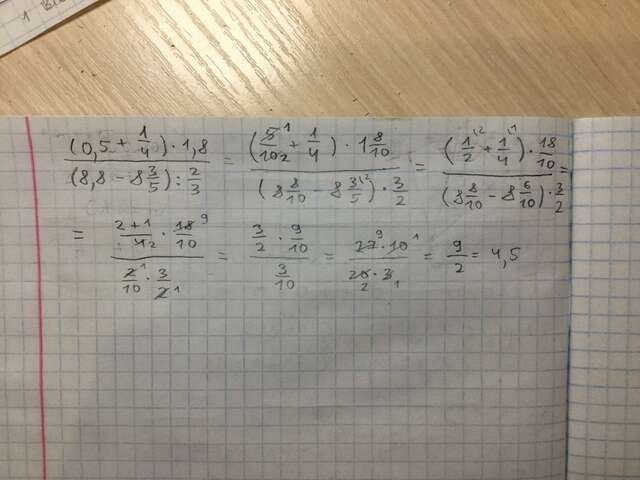 (0,5 + 1/4) · 1,8 / (8,8 − 8 3/5) : 2/3 = (5¹/10₂ + 1/4) · 1 8/10 / (8 8/10 − 8 3/5⁽²) · 3/2 = (1/2⁽² + 1/4⁽¹) · 18/10 / (8 8/10 − 8 6/10) · 3/2 =
= 2+1/4₂ · 18⁹/10 / 2¹/10 · 3/2₁ = 3/2 · 9/10 / 3/10 = 27⁹ · 10¹ / 20₂ · 3₁ = 9/2 = 4,5